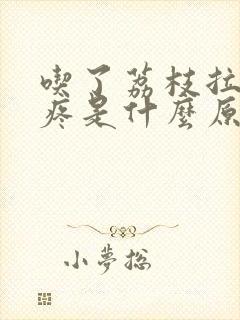 喫了荔枝拉
疼是什麼原
小夢総